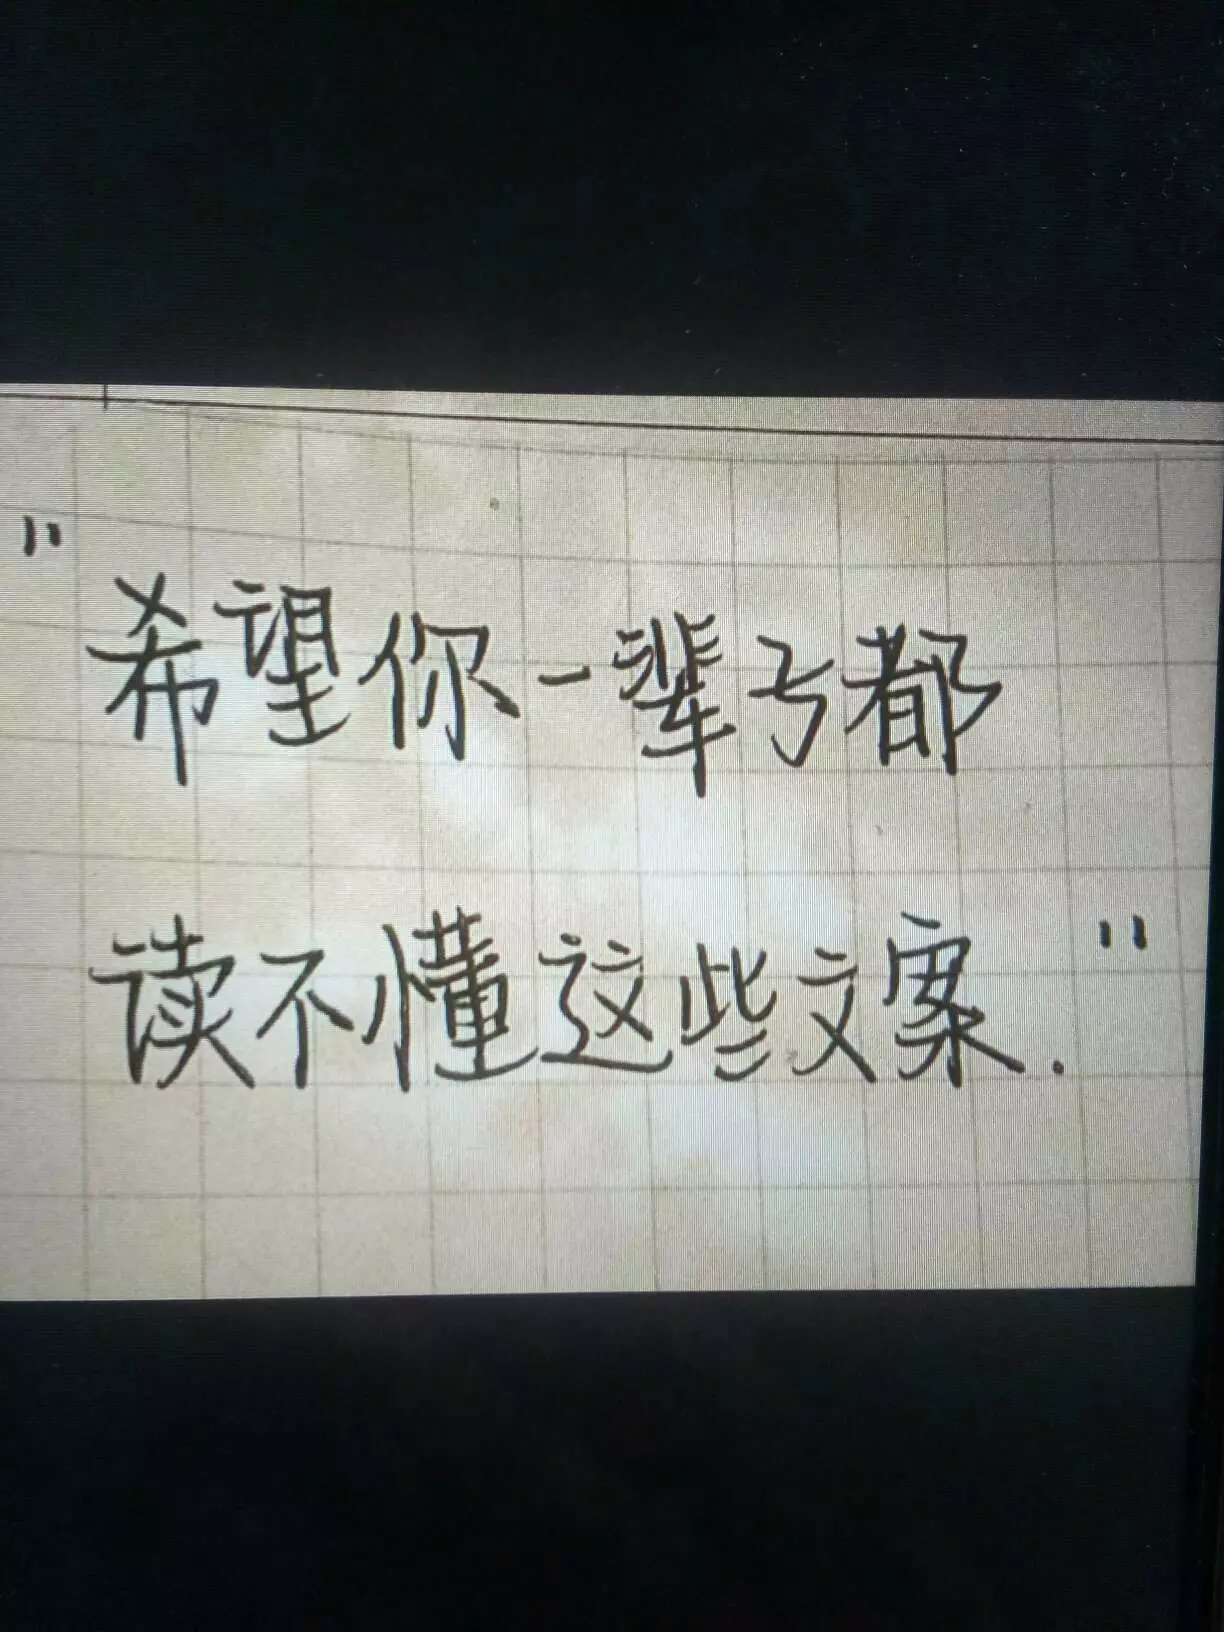 "希望你一辈子都
读不懂这些文案."